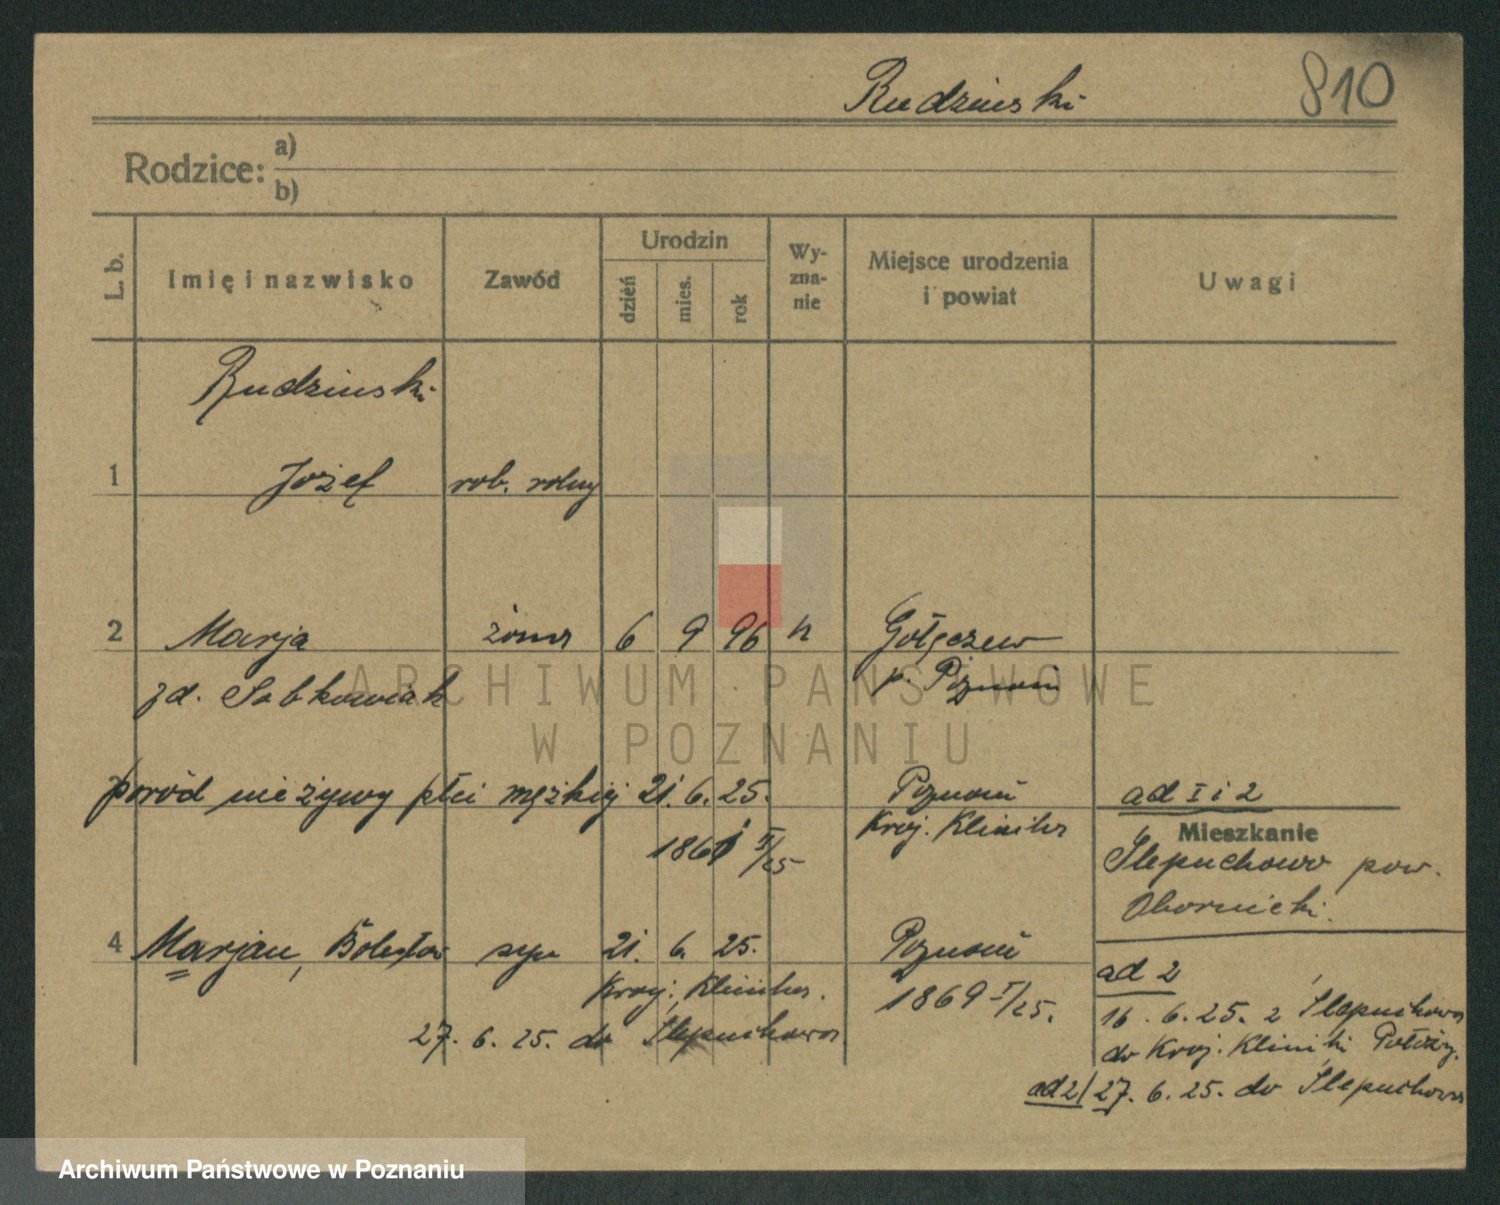 Rudzinski 810
Rodzice: a)
b)
L. b. Imię i nazwisko Zawód Urodzin dzień mies. rok Wy-zna-nie Miejsce urodzenia i powiat Uwagi
Rudzinski
1 Józef rob. rolny
2 Marja żona 6 9 96 k Gołęczewo
zd. Sobkowiak p. Poznań
poród nieżywy płci męzkiej 21. 6. 25. Poznań ad 1 i 2
Kraj. Klinika Mieszkanie
II/25 Ślepuchowo pow.
Obornicki.
4 Marjan, Bolesław syn 21. 6. 25. Poznań
Kraj. Klinika. 1869 I/25. ad 2
27. 6. 25. do Ślepuchowa 16. 6. 25. z Ślepuchowa
do Kraj. Kliniki Położn.
ad 2/ 27. 6. 25. do Ślepuchowa
ARCHIWUM PAŃSTWOWE
W POZNANIU
Archiwum Państwowe w Poznaniu